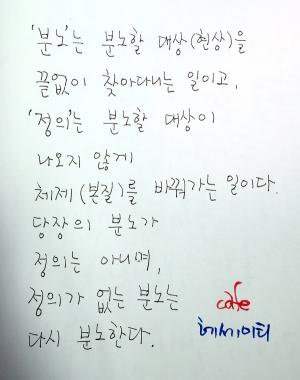 '분노'는 분노할 대상(현상)을
끝없이 찾아다니는 일이고,
'정의'는 분노할 대상이
나오지 않게
체제(본질)를 바꿔가는 일이다.
당장의 분노가
정의는 아니며,
정의가 없는 분노는
다시 분노한다.
cafe
헤세이티